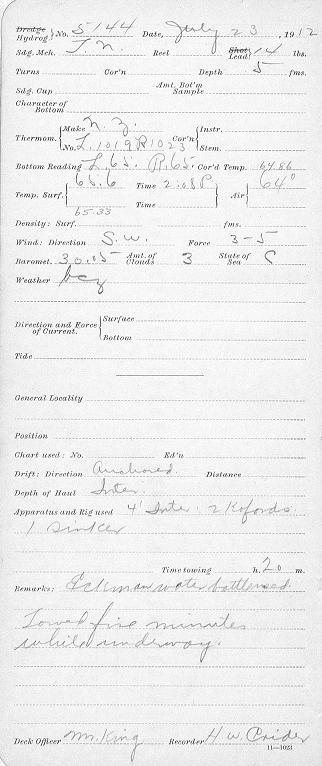 Dredge
Hydrog. No. 5144 Date, July 23, 1912
Sdg. Mch. T.N. Reel Shot Lead 14 lbs.
Turns Cor'n Depth 5 fms.
Sdg. Cup Amt. Bot'm Sample
Character of Bottom
Thermom. Make N.Z. Cor'n Instr.
No. L.1019 R1023 Stem.
Bottom Reading L.65. R.65. Cor'd Temp. 64.86
Temp. Surf. 65.6 Time 2:08P Air 64°
65.33 Time
Density: Surf. fms.
Wind: Direction S.W. Force 3-5
Baromet. 30.05 Amt. of Clouds 3 State of Sea C
Weather bcz
Direction and Force of Current. Surface
Bottom
Tide
General Locality
Position
Chart used: No. Ed'n
Drift: Direction Anchored Distance
Depth of Haul Inter.
Apparatus and Rig used 4' Inter. 2 Kofords.
1 sinker
Time towing h. 20 m.
Remarks: Eckman water bottle used.
Towed five minutes
while underway.
Deck Officer Mr. King Recorder H W. Crider
11—1023